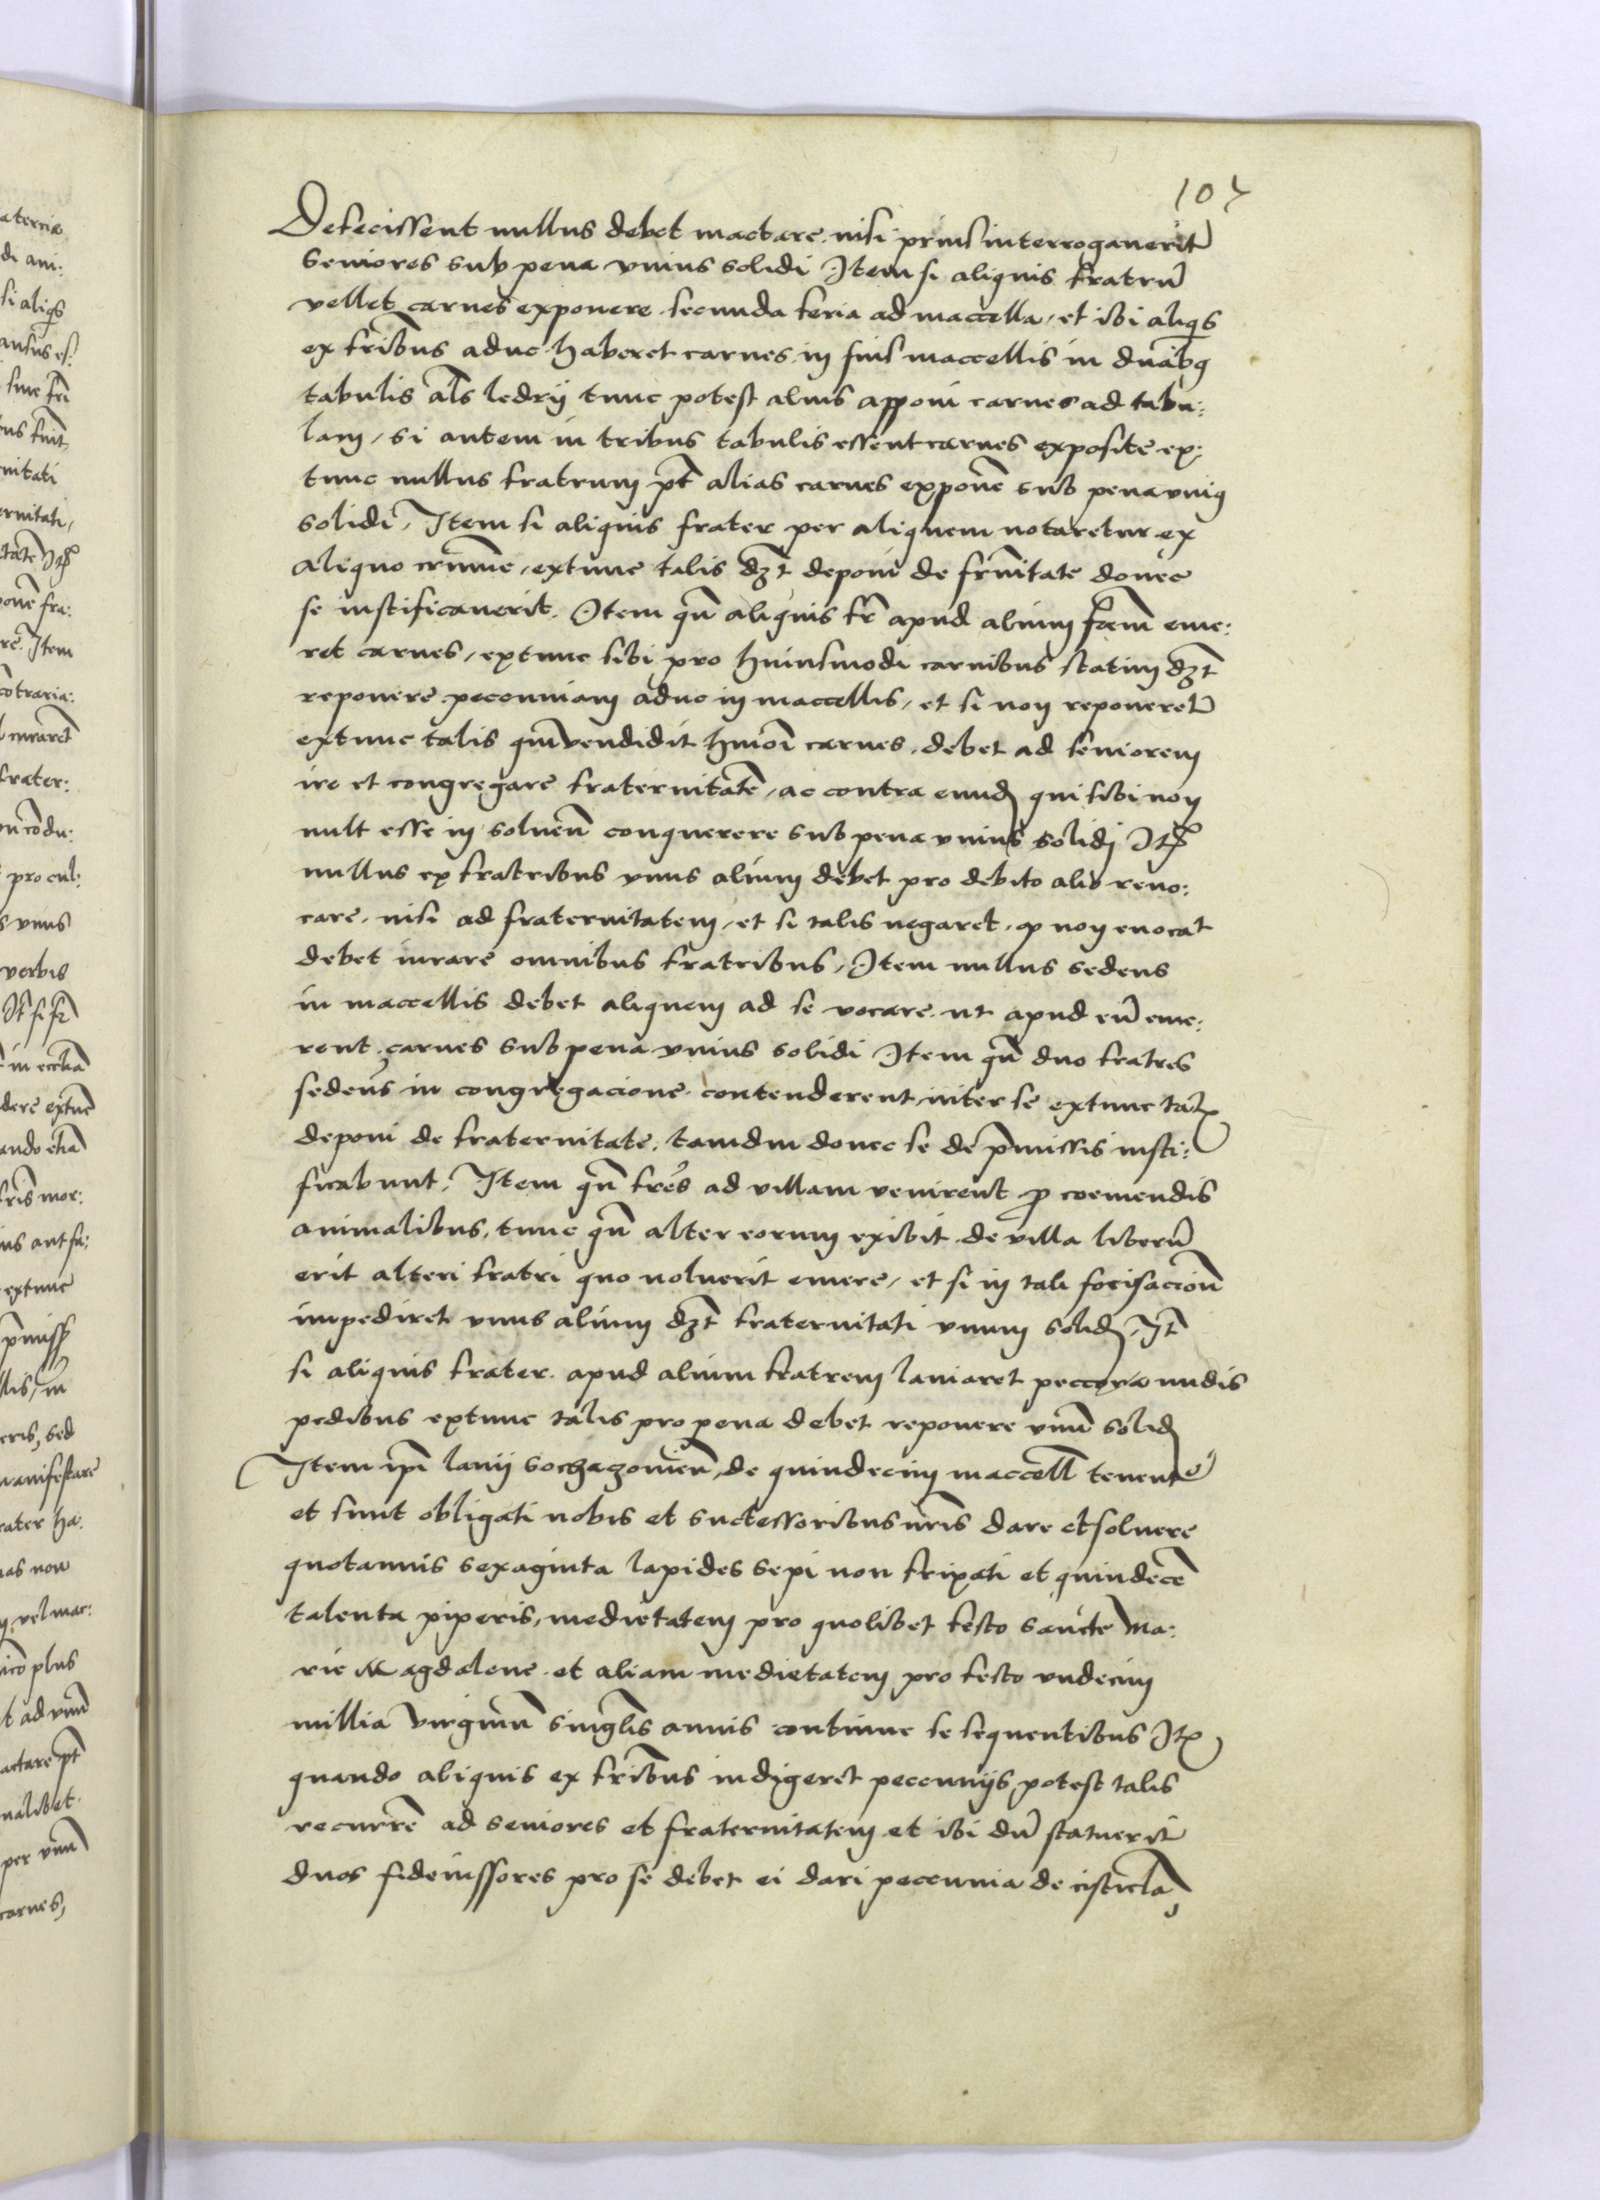 107
Defecissent nullus debet mactare nisi prius interrogaverit
Seniores sub pena vnius solidi Item si aliquis fratrū
vellet carnes exponere secunda feria ad maccella, et ibi aliqs
ex frībus aduc haberet carnes in suis maccellis in duabq
tabulis als ledrij tunc potest alius apponi carnes ad tabu:
lam, si autem in tribus tabulis essent carnes exposite ex:
tunc nullus fratrum pt alias carnes exponē sub pena vniq
solidi, Item si aliquis frater per aliquem notaretur ex
aliquo crimīe, extunc talis dz̄t deponi de frnitate donec
se iustificaverit. Item qn̄ aliquis fr̄ apud alium frem eme:
ret carnes, extunc sibi pro huiusmodi carnibus statim dz̄t
reponere peccuniam aduc in maccellis, et si non reponeret
extunc talis qui vendidit hmōi carnes, debet ad seniorem
ire et congregare fraternitatē, ac contra eund qui sibi non
uult esse in soluen̄ conquerere sub pena vnius solidj Itē
nullus ex fratribus vnus alium debet pro debito alio reuo:
care, nisi ad fraternitatem, et si talis negaret, qp non euocat
debet iurare omnibus fratribus, Item nullus sedens
in maccellis debet aliquem ad se vocare ut apud eū eme:
rent carnes sub pena vnius solidi Item qn̄ duo fratres
sedens in congregacione contenderent inter se extunc tales
deponi de fraternitate, tamdiu donec se de pmissis iusti:
ficabunt, Item qn̄ fres ad villam venirent p coemendis
animalibus, tunc qn̄ alter eorum exibit de villa liberū
erit alteri fratri quo voluerit emere, et si in tali
impediret vnus alium dz̄t fraternitati vnum solid, It
si aliquis frater apud alium fratrem laniaret peccora nudis
pedibus extunc talis pro pena debet reponere vnū solid
Item ipi lanij sochazovien̄, de quindecim maccell tenent
et sunt obligati nobis et successoribus nris dare et soluere
quotannis sexaginta lapides sepi non frixati et quindecē
talenta piperis, medietatem pro quolibet festo sancte Ma:
rie Magdalene et aliam medietatem pro festo vndecim
millia virginū singlis annis continue se sequentibus Itē
quando aliquis ex fribus indigeret peccunijs potest talis
recurrē ad seniores et fraternitatem et ibi dū statuerit
duos fideiussores pro se debet ei dari peccunia de cisticla,